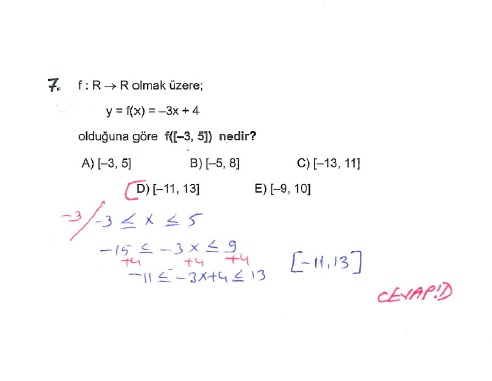 7. f : R → R olmak üzere;
y = f(x) = –3x + 4
olduğuna göre f([–3, 5]) nedir?
A) [–3, 5] B) [–5, 8] C) [–13, 11]
D) [–11, 13] E) [–9, 10]
-3/ -3 ≤ x ≤ 5
-15 ≤ -3x ≤ 9
+4 +4 +4
-11 ≤ -3x+4 ≤ 13 [-11,13]
CEVAP:D